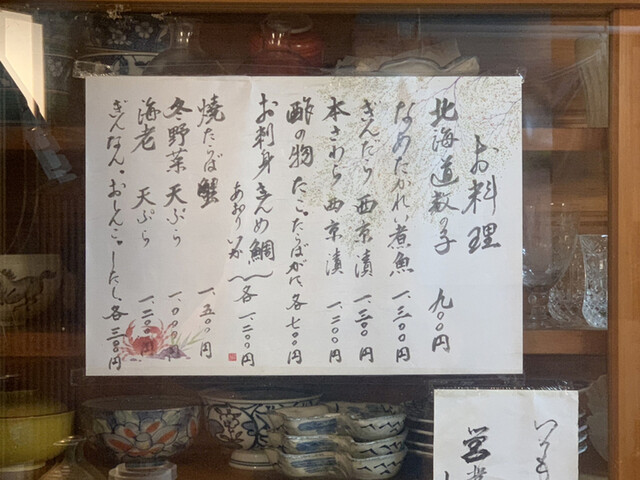 お料理
北海道数の子 九〇〇円
なめたかれい煮魚 一、三〇〇円
ぎんだら 西京漬 一、三〇〇円
本さわら 西京漬 一、二〇〇円
酢の物 たこ。たらばがに 各七〇〇円
お刺身 きんめ鯛 あおりいか 各一、二〇〇円
焼たらば蟹 一、五〇〇円
冬野菜 天ぷら 一、〇〇〇円
海老 天ぷら 一、二〇〇円
ぎんなん。おしんこ。したし 各三〇〇円
いつも
営業